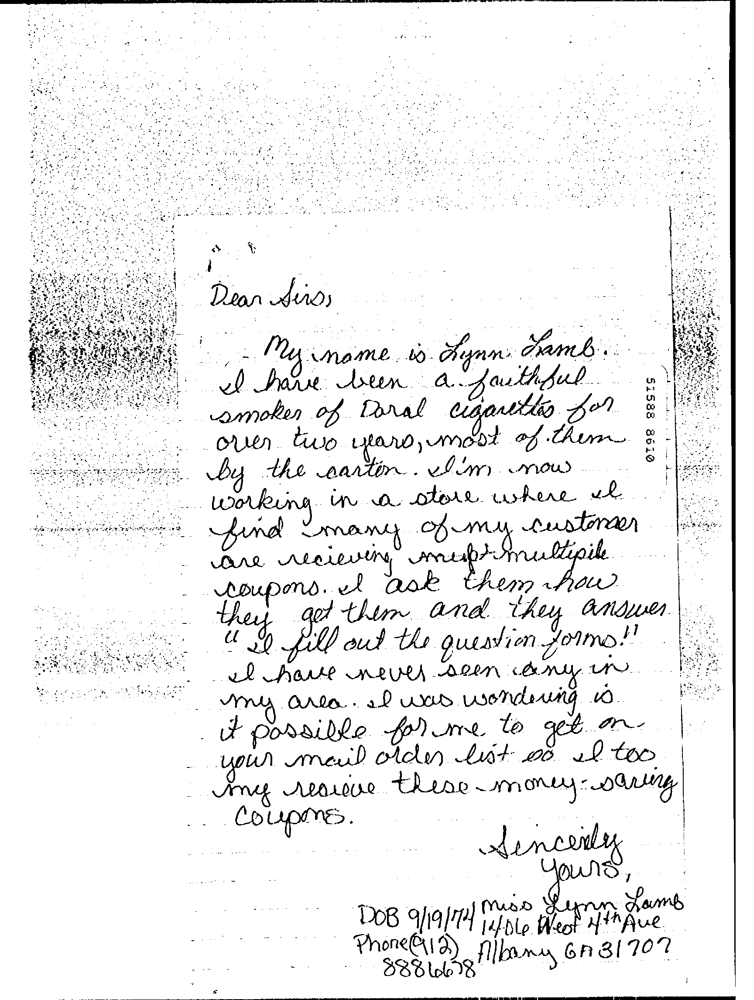 Dear Sirs,
My name is Lynn Lamb.
I have been a faithful
smoker of Doral cigarettes for
over two years, most of them
by the carton. I'm now
working in a store where I
find many of my customer
are recieving multipile
coupons. I ask them how
they get them and they answer
"I fill out the question forms!"
I have never seen any in
my area. I was wondering is
it possible for me to get on
your mail order list so I too
my recieve these money-saving
coupons.
Sincerely
yours,
Miss Lynn Lamb
DOB 9/19/74 1406 West 4th Ave
Phone (912) Albany GA 31707
8886678
51588 8610